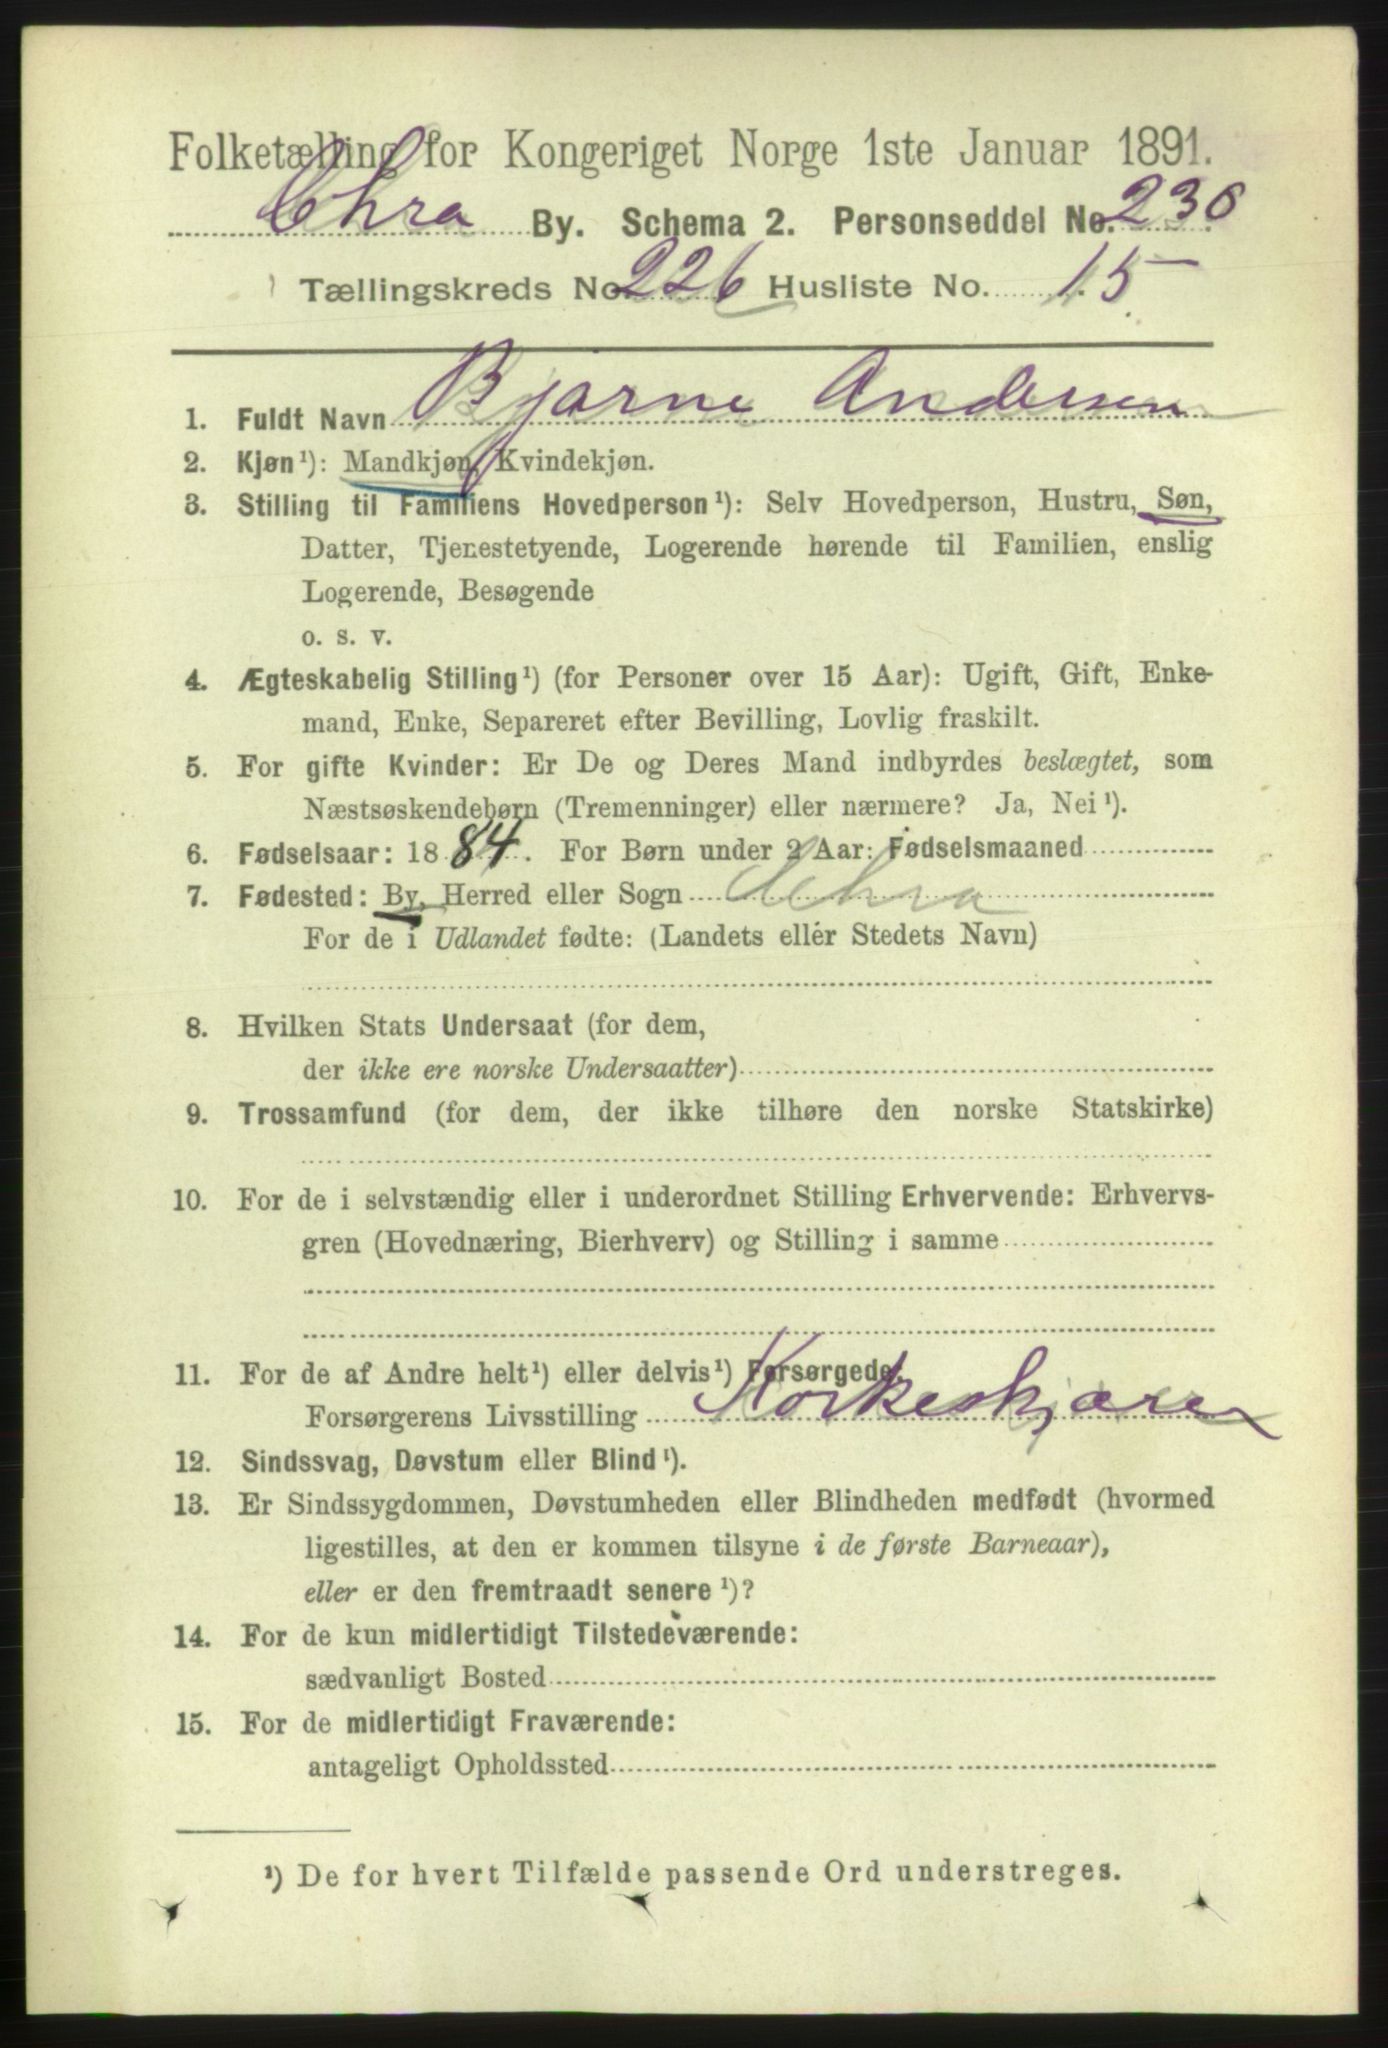 Folketælling for Kongeriget Norge 1ste Januar 1891.
Chra By. Schema 2. Personseddel No. 230
Tællingskreds No. 226 Husliste No. 15
1. Fuldt Navn Bjarne Andersen
2. Kjøn¹): Mandkjøn, Kvindekjøn.
3. Stilling til Familiens Hovedperson¹): Selv Hovedperson, Hustru, Søn,
Datter, Tjenestetyende, Logerende hørende til Familien, enslig
Logerende, Besøgende
o. s. v.
4. Ægteskabelig Stilling¹) (for Personer over 15 Aar): Ugift, Gift, Enke-
mand, Enke, Separeret efter Bevilling, Lovlig fraskilt.
5. For gifte Kvinder: Er De og Deres Mand indbyrdes beslægtet, som
Næstsøskendebørn (Tremenninger) eller nærmere? Ja, Nei¹).
6. Fødselsaar: 1884. For Børn under 2 Aar: Fødselsmaaned
7. Fødested: By, Herred eller Sogn Chra
For de i Udlandet fødte: (Landets eller Stedets Navn)
8. Hvilken Stats Undersaat (for dem,
der ikke ere norske Undersaatter)
9. Trossamfund (for dem, der ikke tilhøre den norske Statskirke)
10. For de i selvstændig eller i underordnet Stilling Erhvervende: Erhvervs-
gren (Hovednæring, Bierhverv) og Stilling i samme
11. For de af Andre helt¹) eller delvis¹) Forsørgede,
Forsørgerens Livsstilling Korkeskjærer
12. Sindssvag, Døvstum eller Blind¹).
13. Er Sindssygdommen, Døvstumheden eller Blindheden medfødt (hvormed
ligestilles, at den er kommen tilsyne i de første Barneaar),
eller er den fremtraadt senere¹)?
14. For de kun midlertidigt Tilstedeværende:
sædvanligt Bosted
15. For de midlertidigt Fraværende:
antageligt Opholdssted
¹) De for hvert Tilfælde passende Ord understreges.